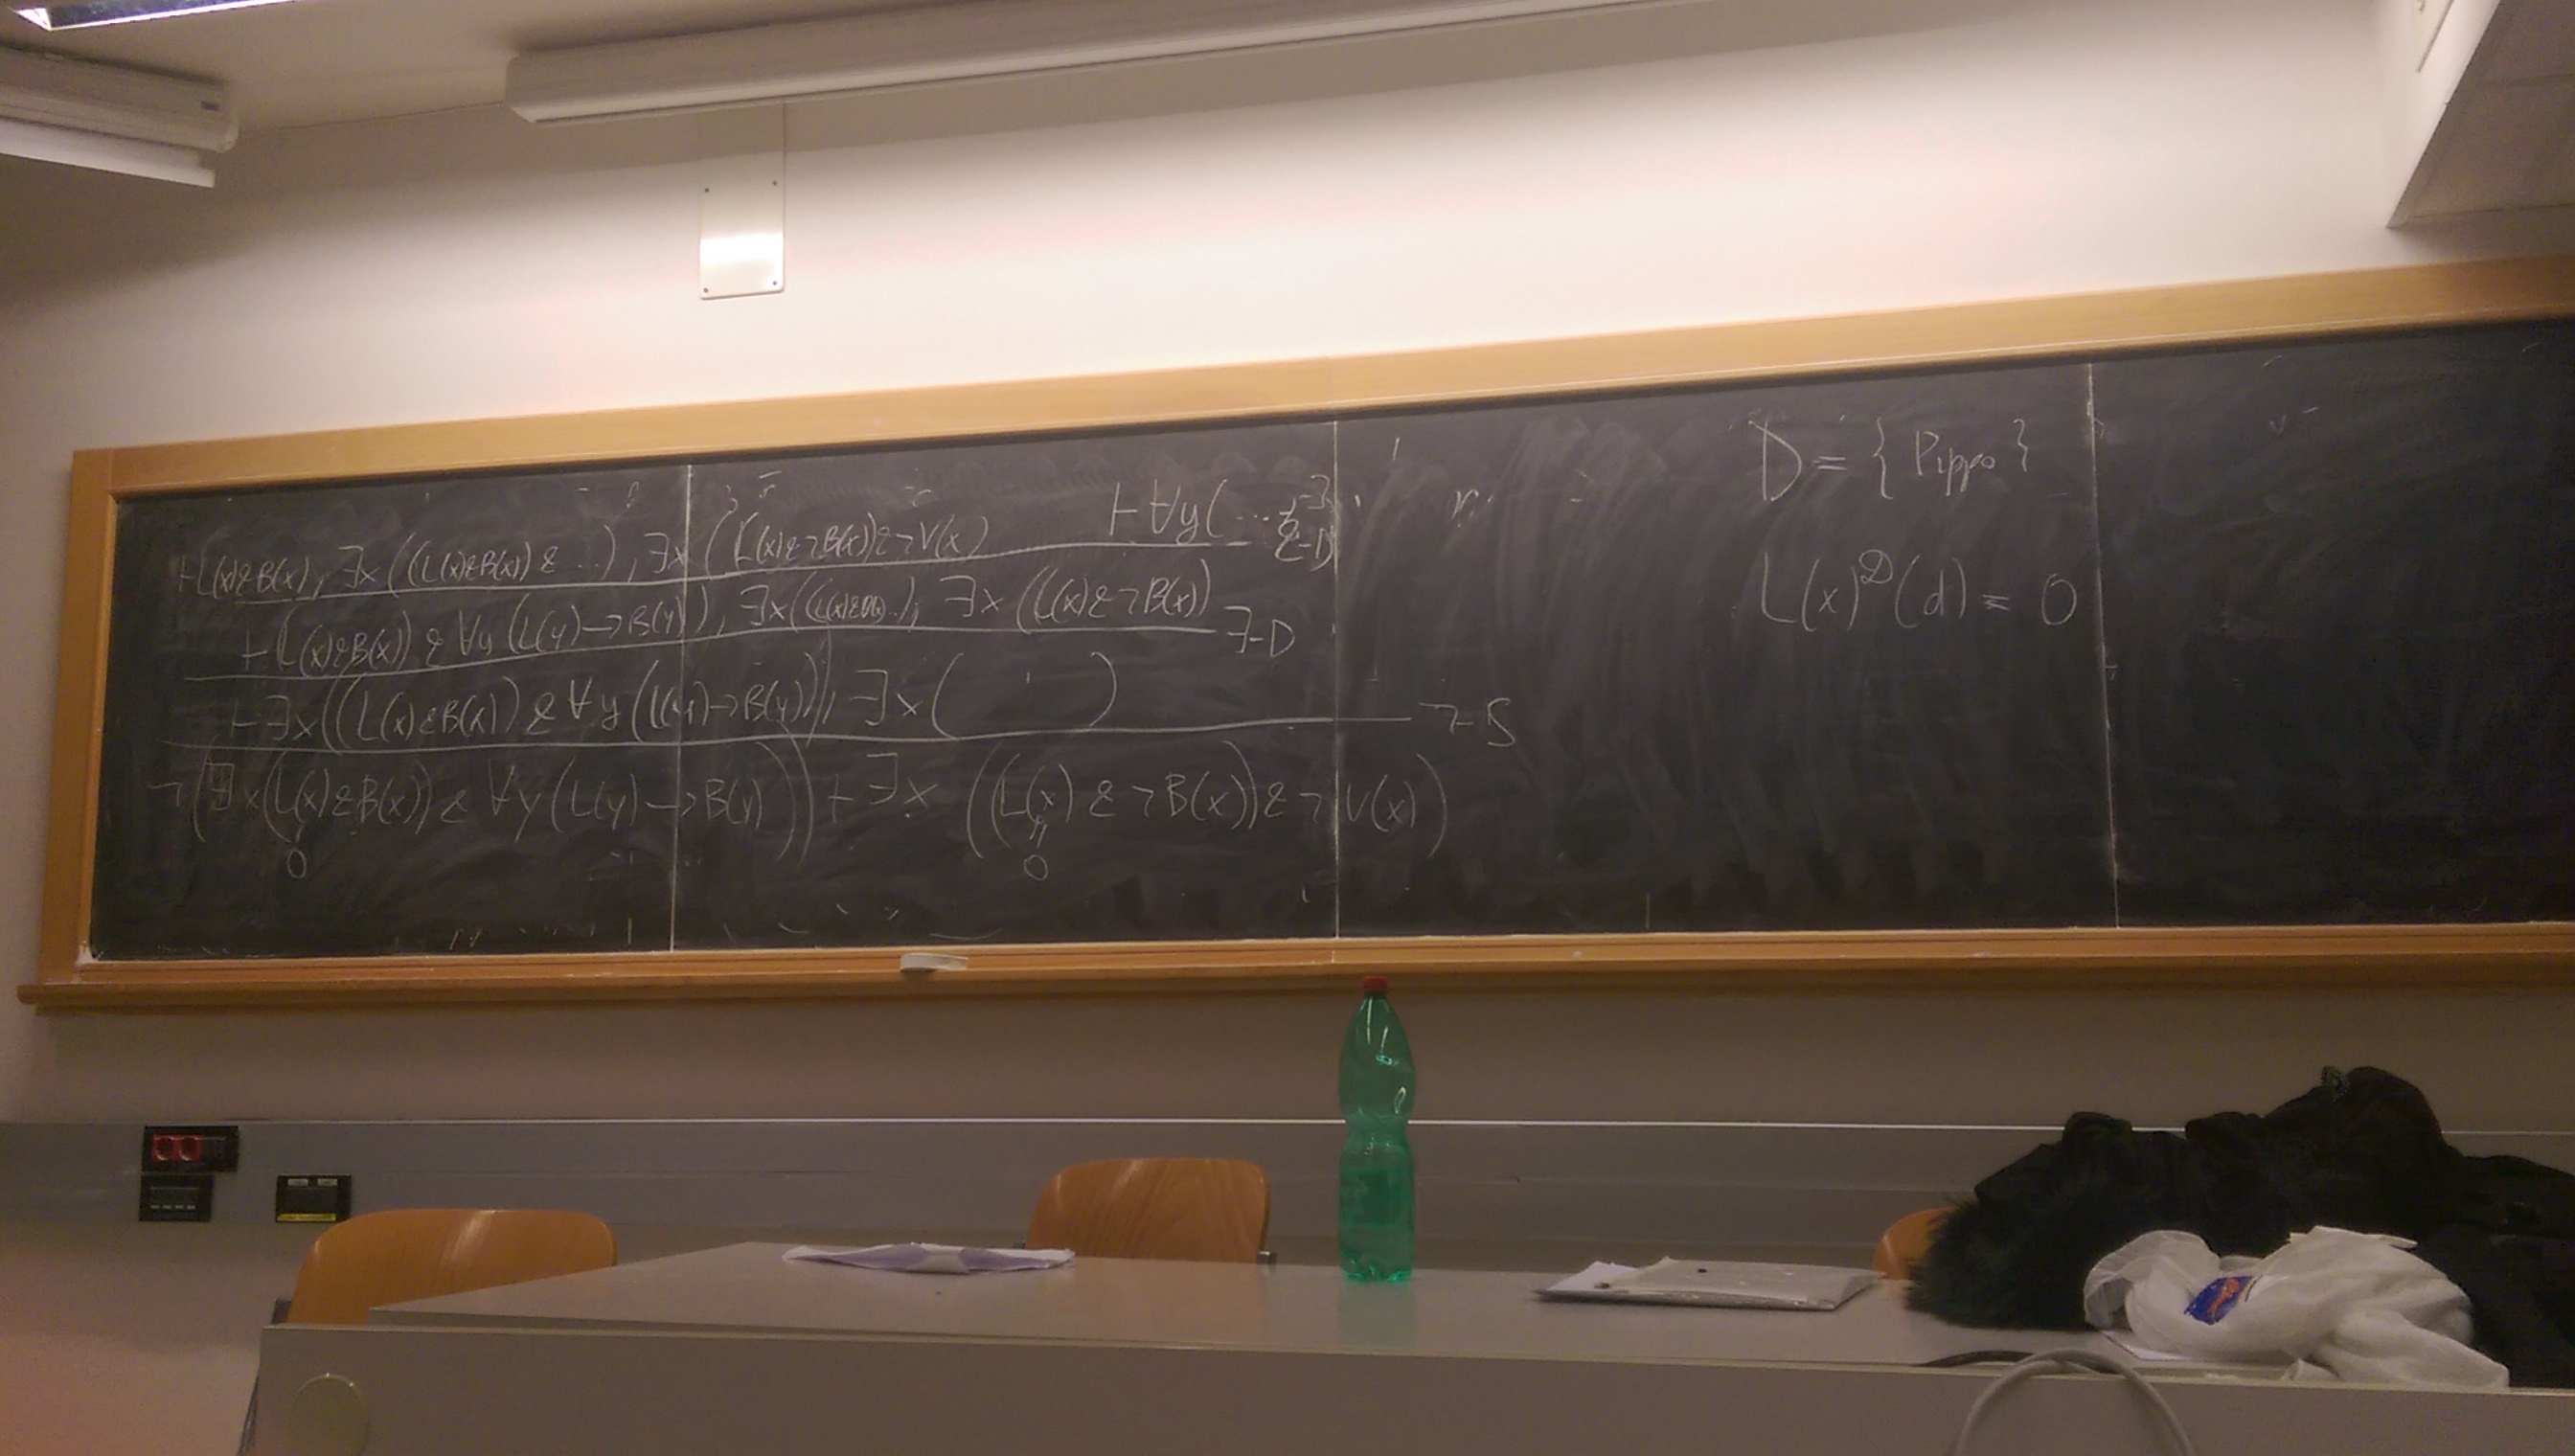 ⊢L(x)&B(x), ∃x((L(x)&B(x)) & ...), ∃x(L(x)&¬B(x))&¬V(x) ⊢∀y(... &-D
⊢(L(x)&B(x)) & ∀y(L(y)→B(y)), ∃x((L(x)&B(x)..), ∃x((L(x)&¬B(x)) ∃-D
⊢∃x((L(x)&B(x)) & ∀y(L(y)→B(y))), ∃x( ) ¬-S
¬(∃x(L(x)&B(x)) & ∀y(L(y)→B(y))) ⊢ ∃x((L(x) & ¬B(x)) & ¬V(x))
0 0
D = { Pippo }
L(x)ᴰ(d) = 0